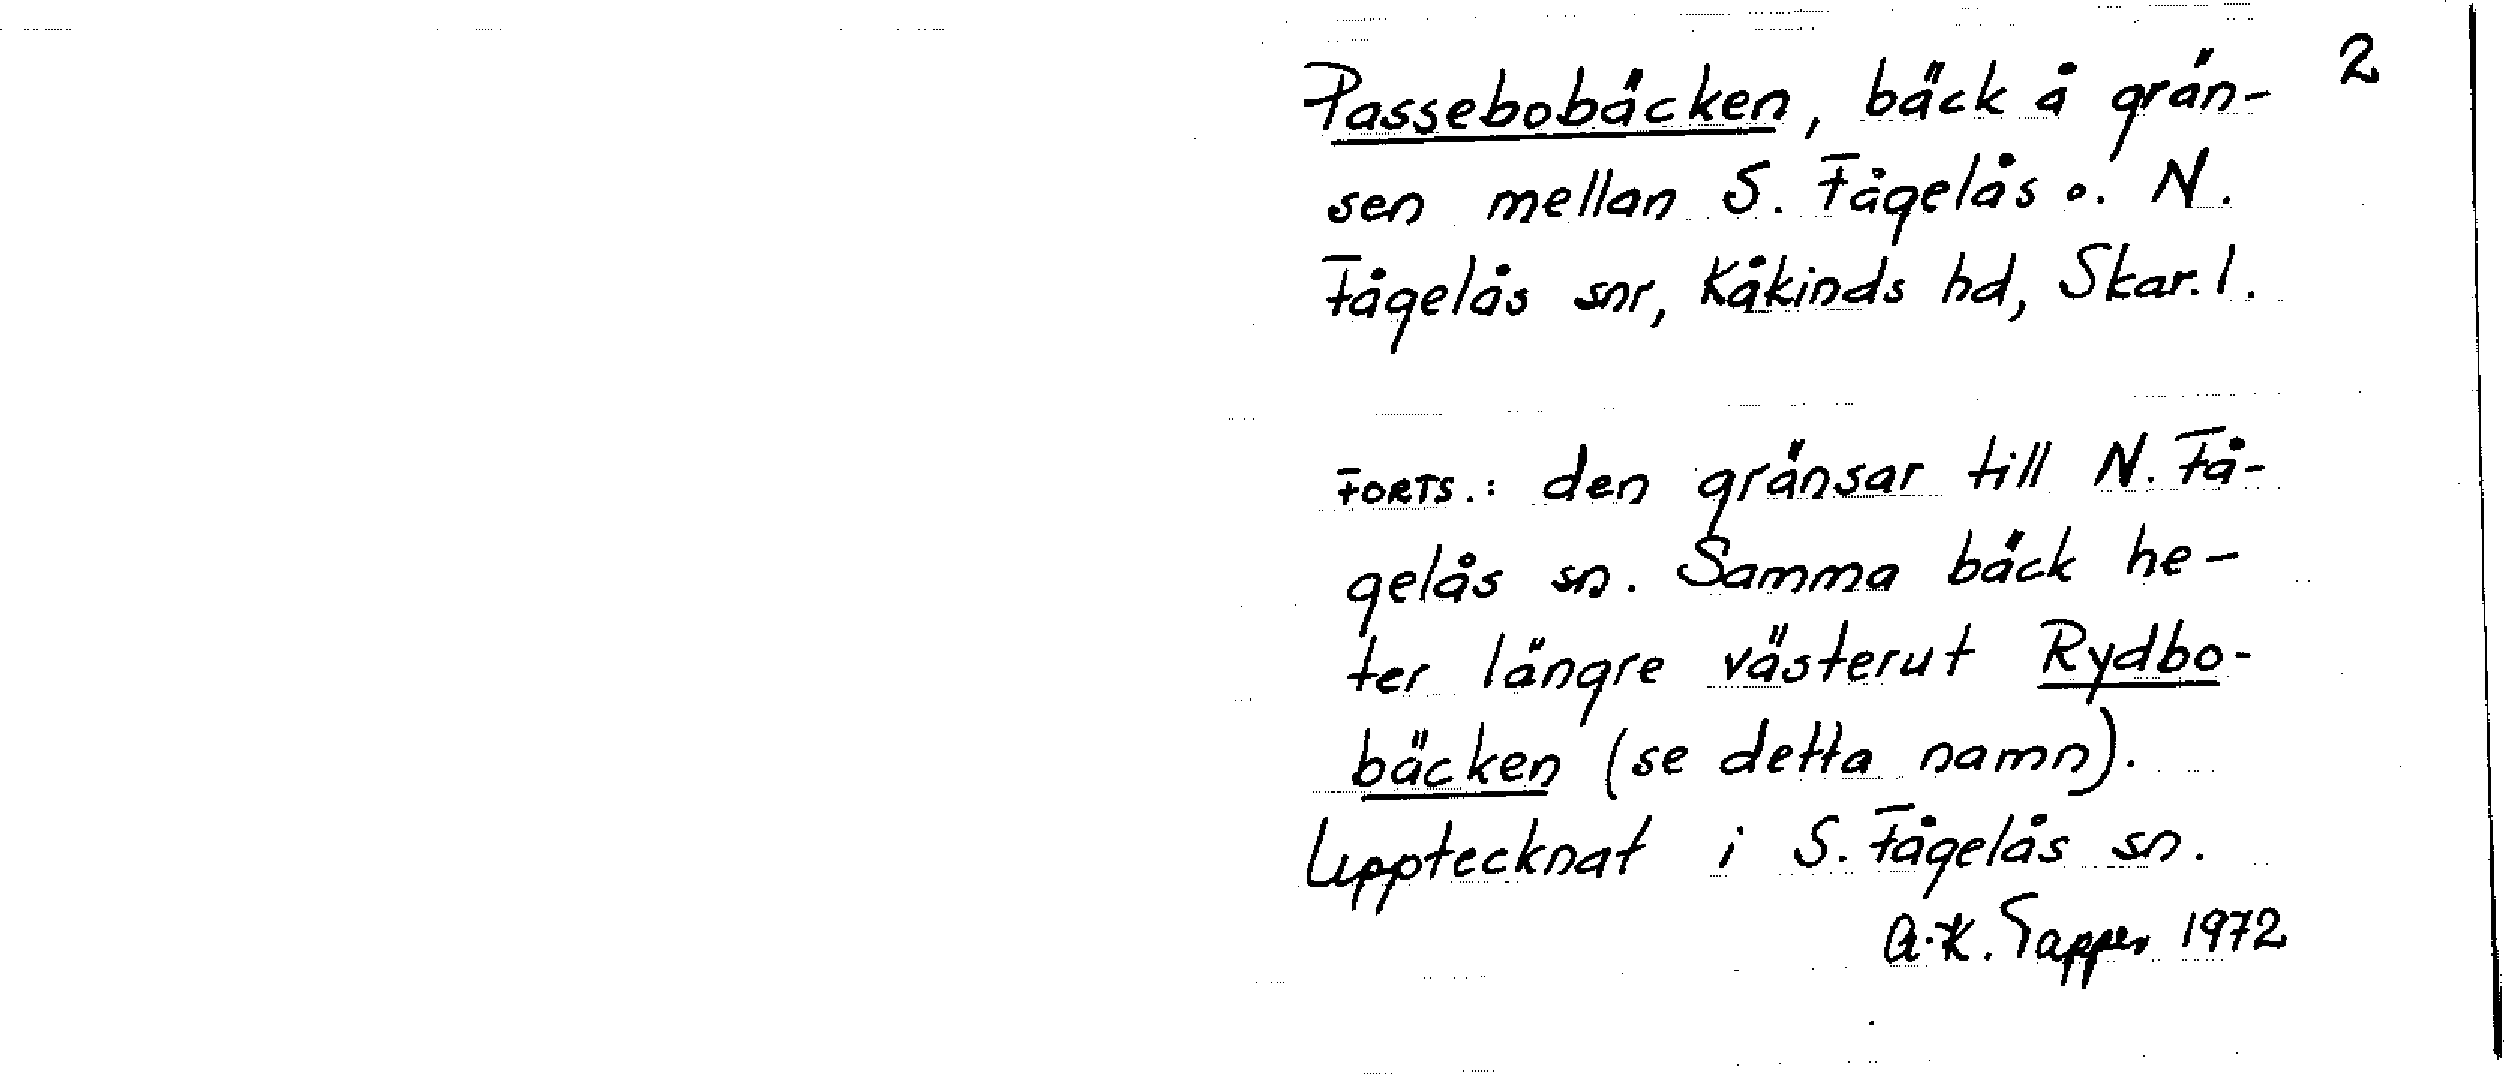 2
Passebobäcken, bäck å grän-
sen mellan S. Fågelås o. N.
Fågelås snr, Kåkinds hd, Skar. l.
FORTS.: den gränsar till N. Få-
gelås sn. Samma bäck he-
ter längre västerut Rydbo-
bäcken (se detta namn).
Upptecknat i S. Fågelås sn.
A-K. Tapper 1972